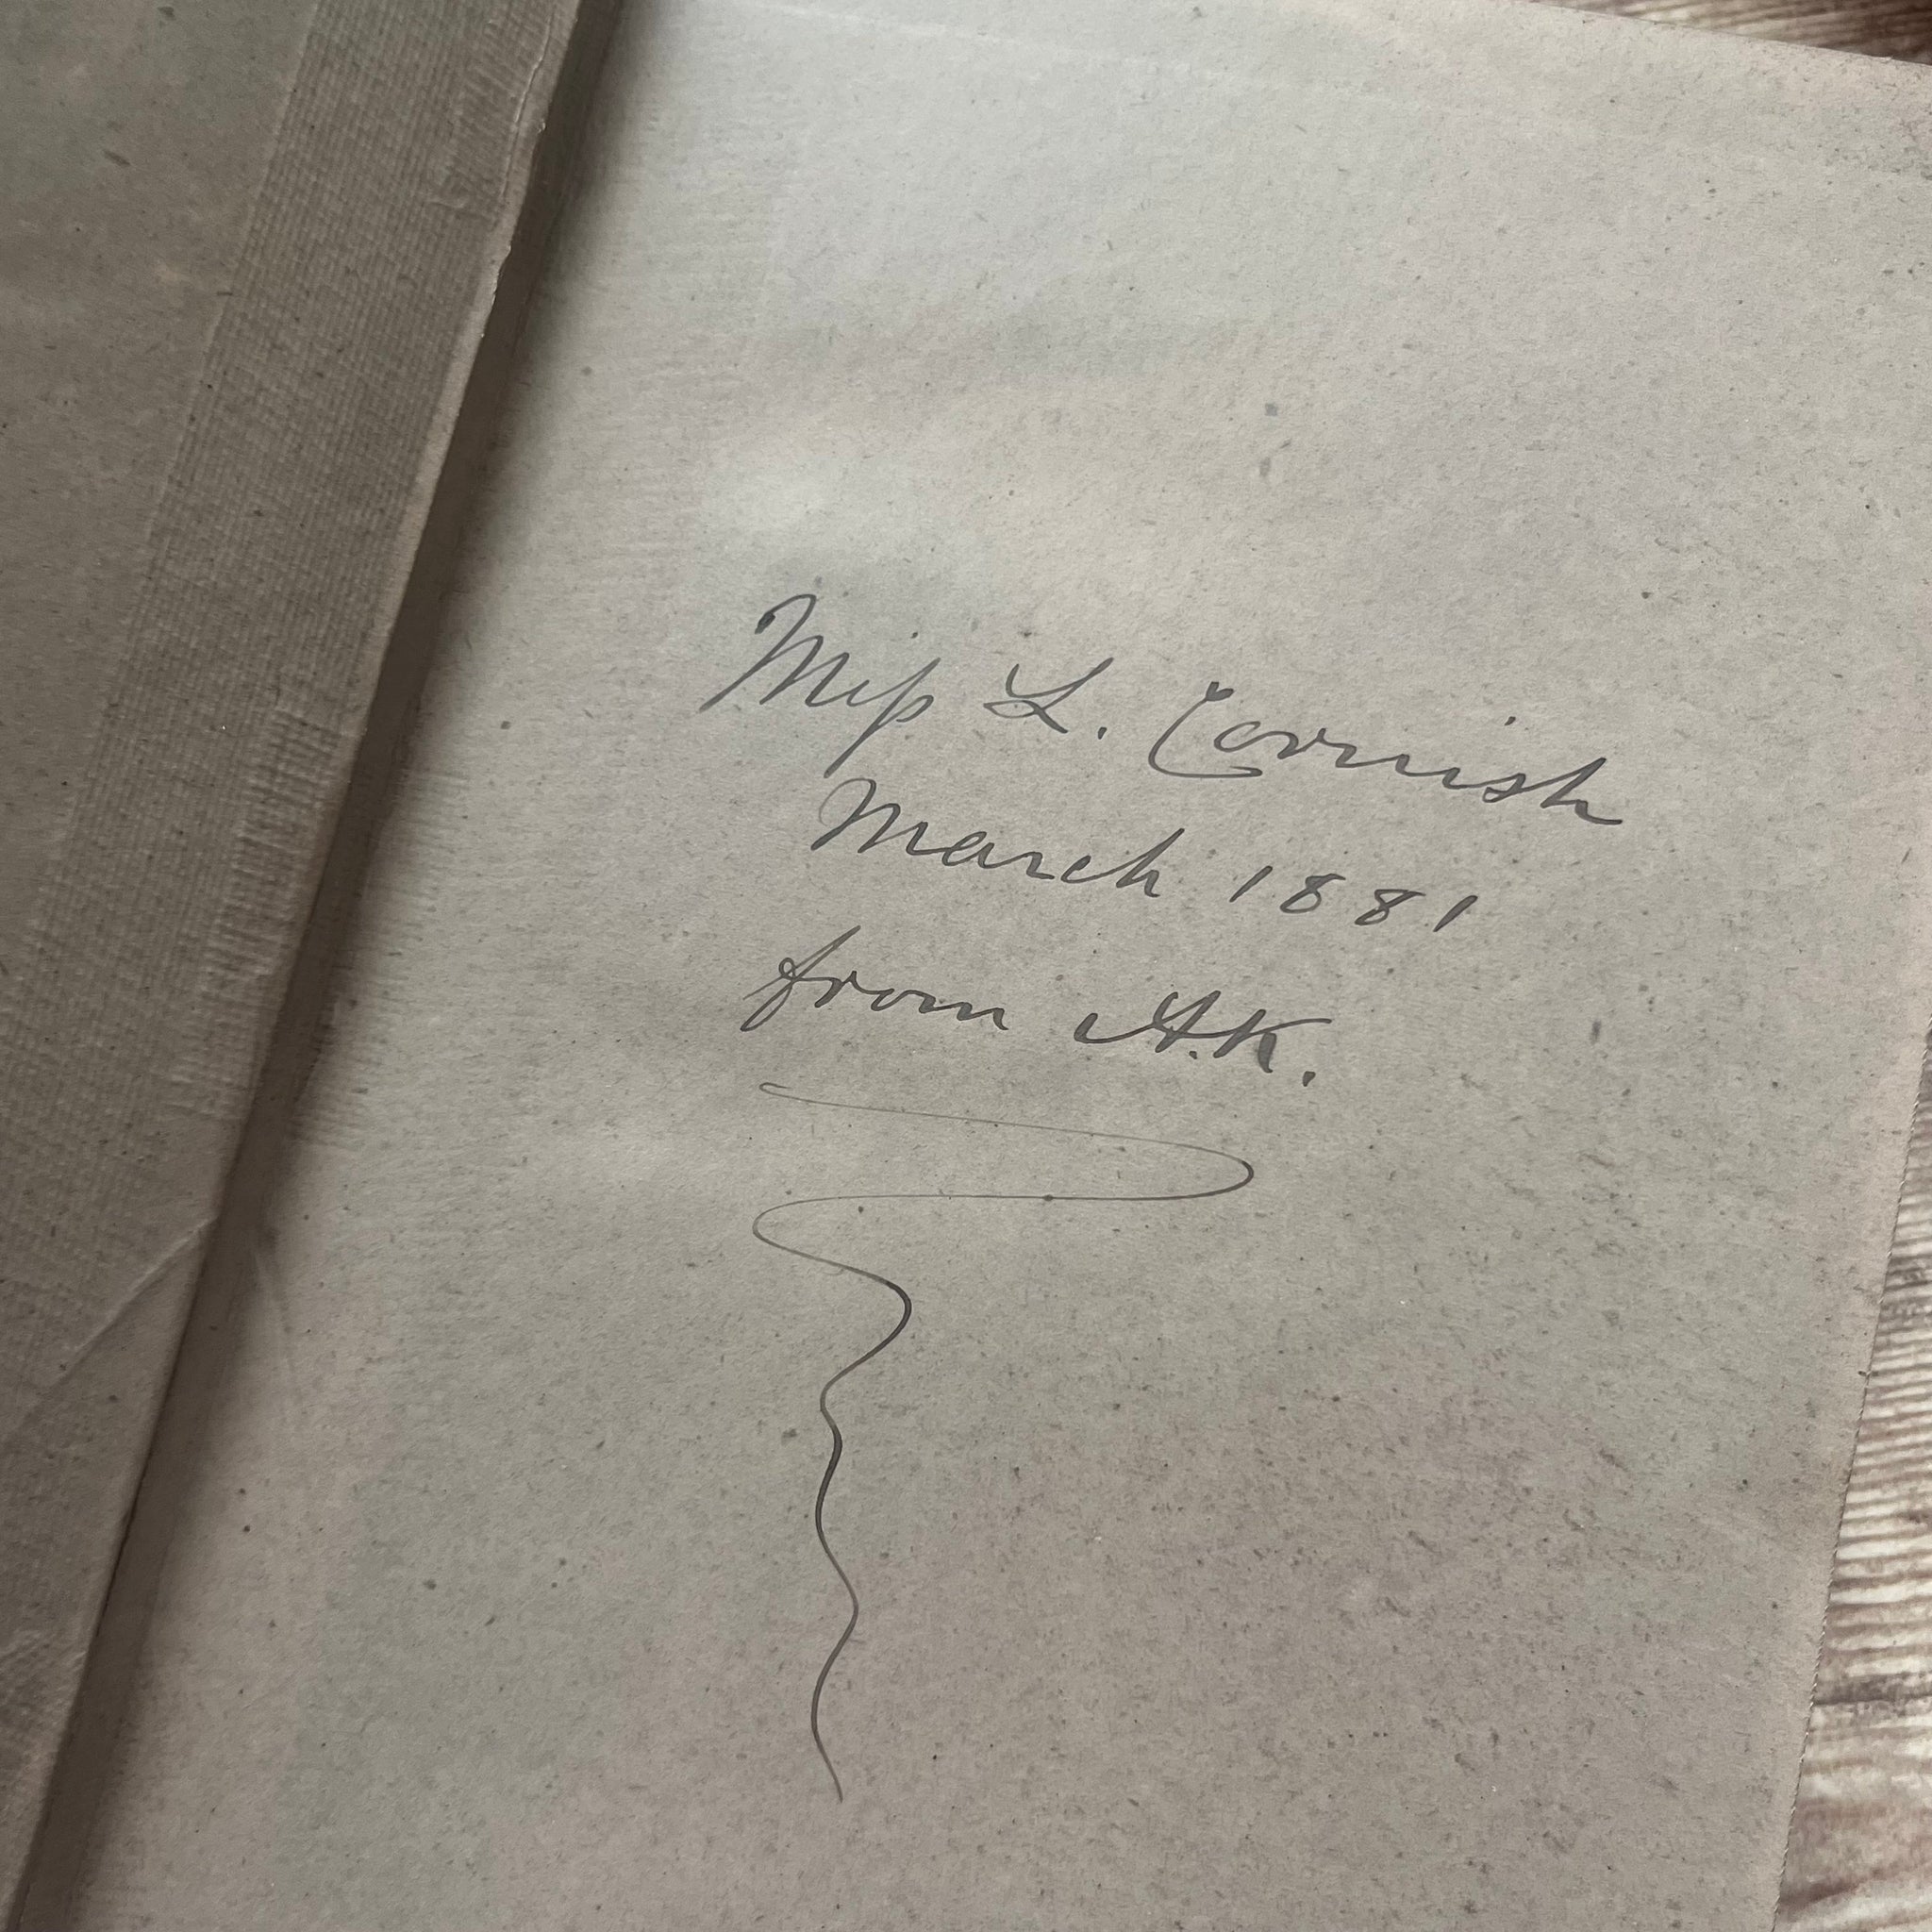 Miss L. Cornish
March 1881
from A.K.